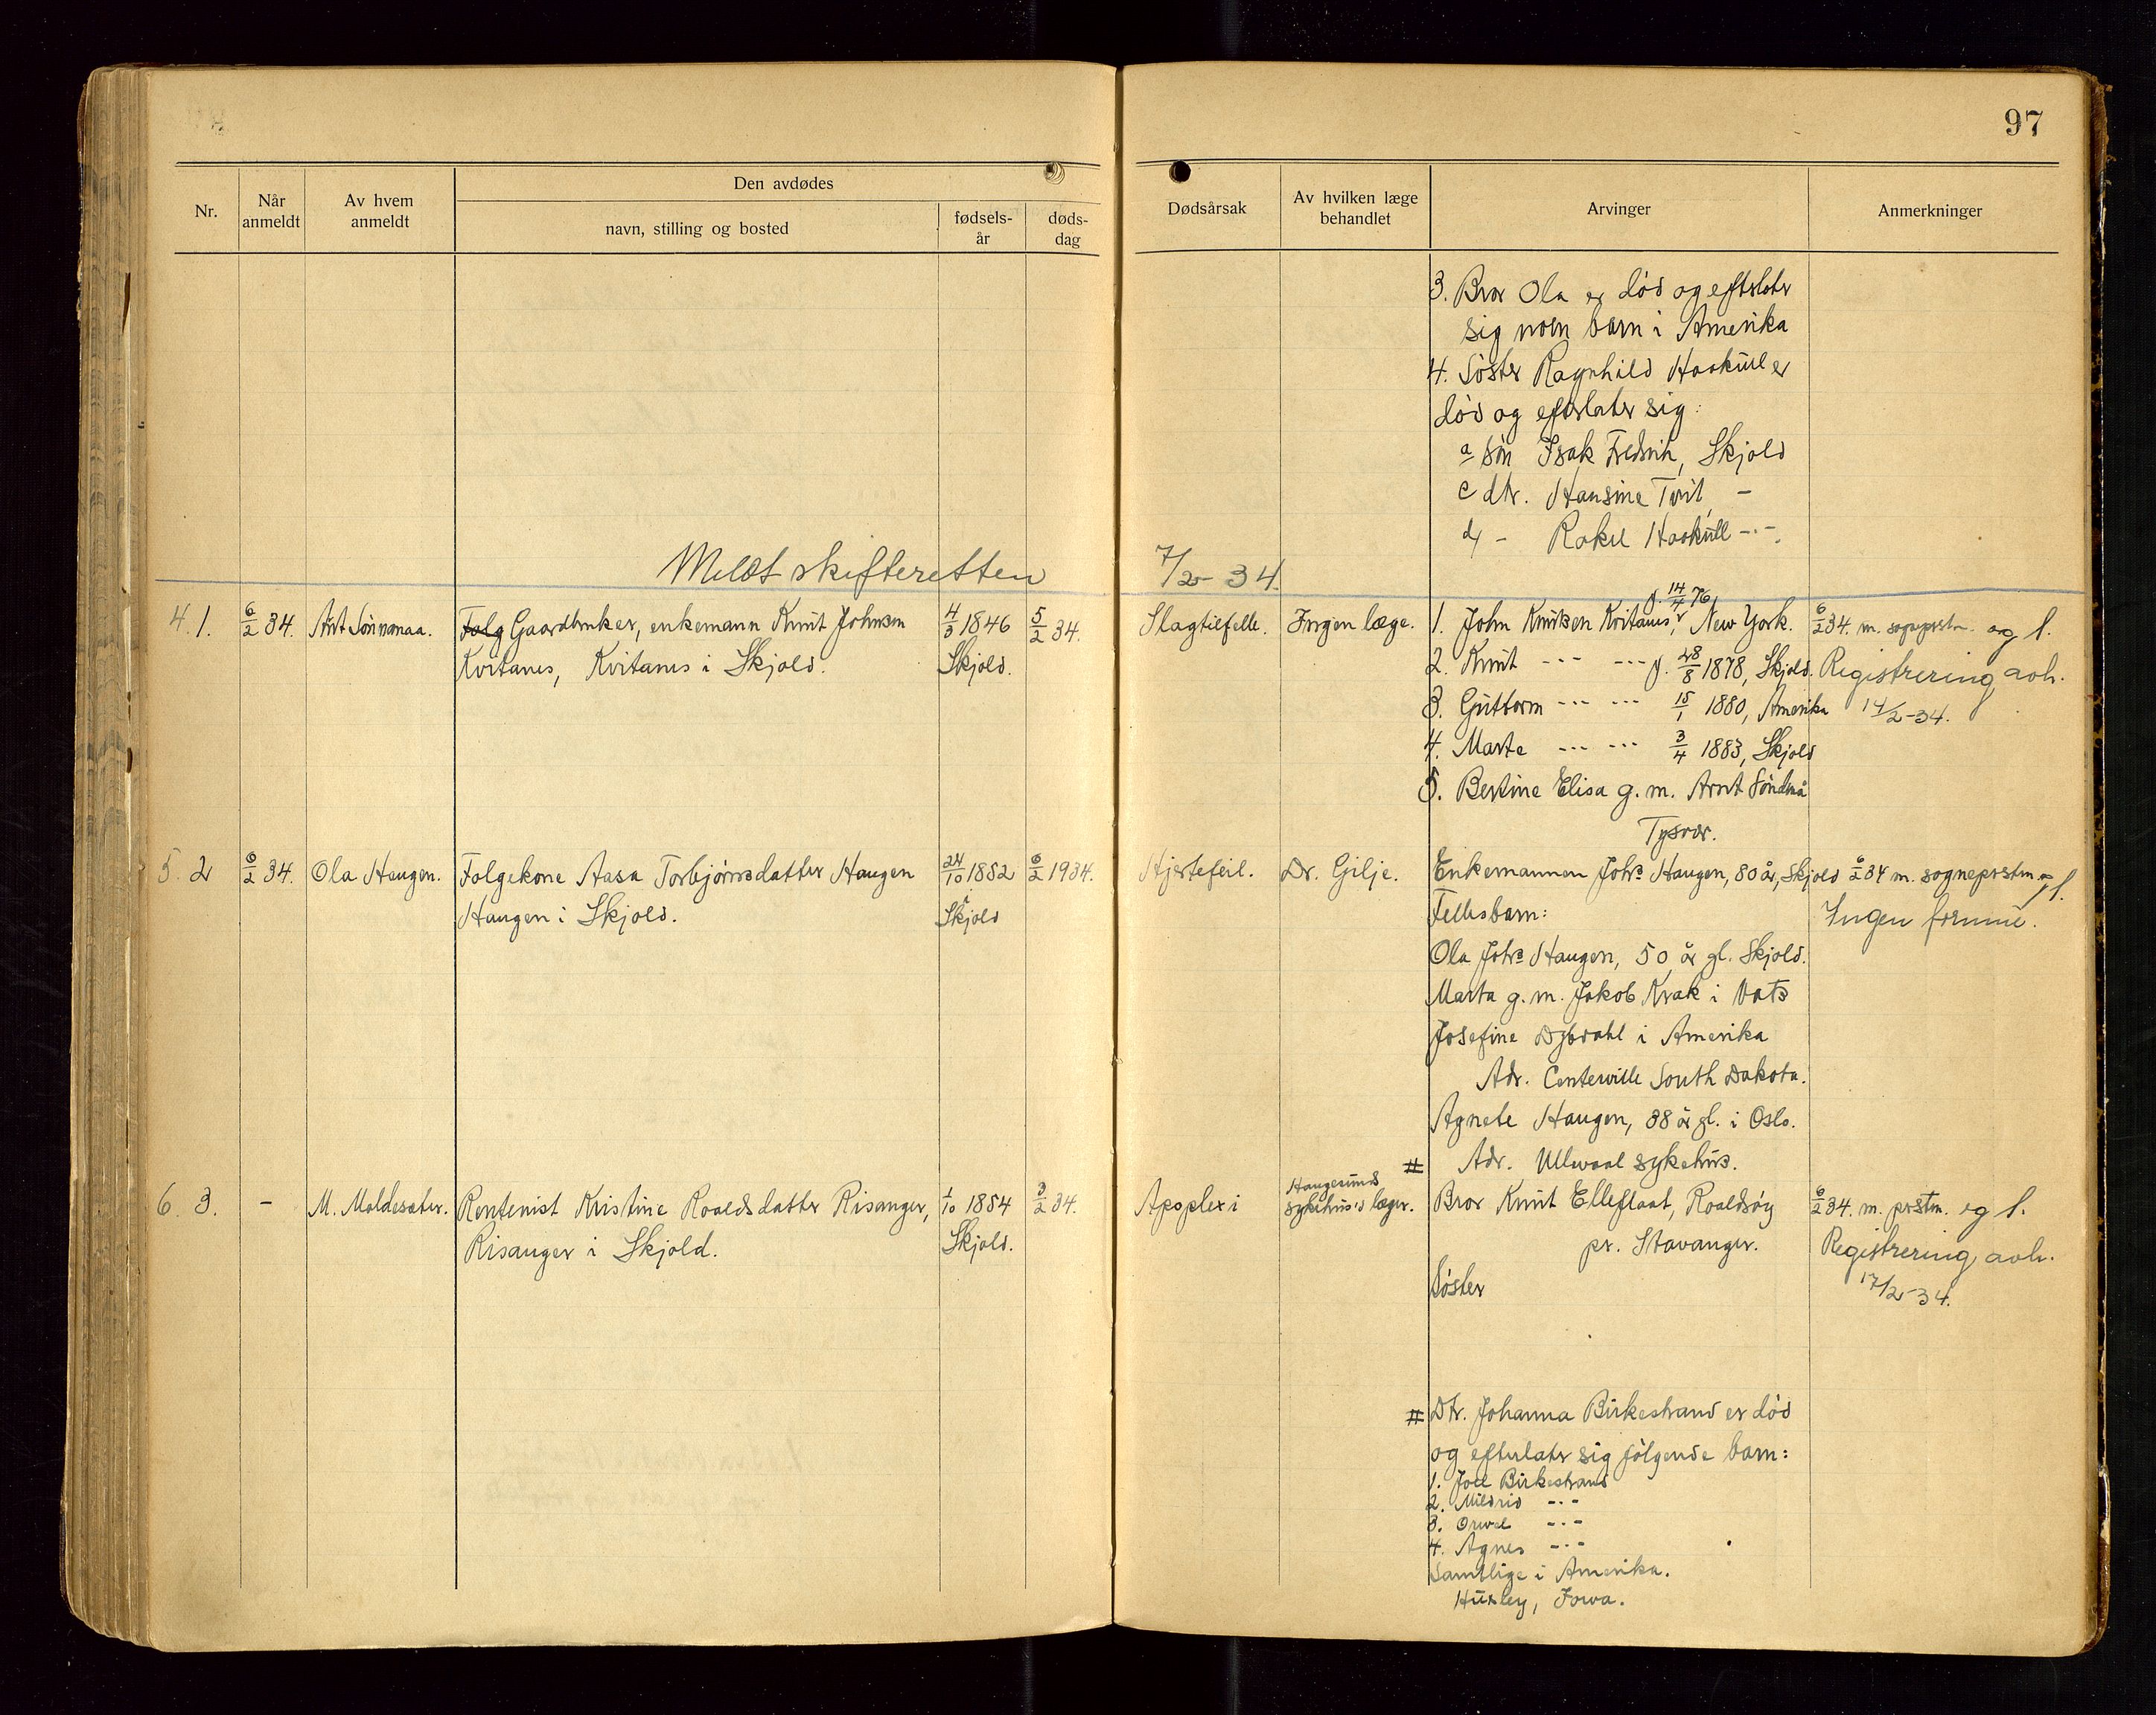 97
Nr.
Når anmeldt
Av hvem anmeldt
Den avdødes
navn, stilling og bosted
fødsels-år
døds-dag
Dødsårsak
Av hvilken læge behandlet
Arvinger
Anmerkninger
3. Bror Ola er död og efterlater
sig noen barn i Amerika
4. Söster Ragnhild Haakull er
död og efterlater sig:
a sön Isak Fredrik, Skjold
c dtr. Hansine Tveit, -
d - Rakel Haakull -"-
Meldt skifteretten 7/2-34.
4. 1. 6/2 34. Arnt Sönnmaa. Folg Gaardbruker, enkemann Knut Johnsen 4/3 1846 5/2 34. Slagtilfelle. Ingen læge.
Kvitanes, Kvitanes i Skjold. Skjold.
f. 14/4 76,
1. John Knutsen Kvitanes, New York.
2. Knut -"- -"- f. 28/8 1878, Skjold.
3. Guttorm -"- -"- 15/1 1880, Amerika
4. Marta -"- -"- 3/4 1883, Skjold
5. Bertine Elisa g. m. Arnt Söndmå
Tysvær.
6/2 34. m. sogneprstm. og l.
Registrering avh.
14/2-34.
5. 2 6/2 34. Ola Haugen. Folgekone Aasa Torbjörnsdatter Haugen 24/10 1852 6/2 1934. Hjertefeil. Dr. Gilje.
Haugen i Skjold. i Skjold
Enkemannen Johs Haugen, 80 år, Skjold
Fellesbarn:
Ola Johs Haugen, 50 år gl. Skjold.
Marta g. m. Jakob Kvak i Vats
Josefine Dybdahl i Amerika
Adr. Centerville South Dakota.
Agnete Haugen, 38 år gl. i Oslo.
# Adr. Ullevaal sykehus.
6/2 34 m. sogneprstm. og l.
Ingen formue.
6. 3. - M. Moldesæter. Rentenist Kristine Roaldsdatter Risanger, 1/10 1854 3/2 34. Apoplexi Haugesunds
Risanger i Skjold. Skjold. sykehus's læger.
Bror Knut Elleflaat, Roaldsöy
pr. Stavanger.
Söster
6/2 34. m. prstm. og l.
Registrering avh.
17/2-34.
# Dtr. Johanna Birkestrand er död
og efterlater sig fölgende barn:
1. Joel Birkestrand
2. Mildrid -"-
3. Orvel -"-
4. Agnes -"-
Samtlige i Amerika.
Huxley, Iowa.